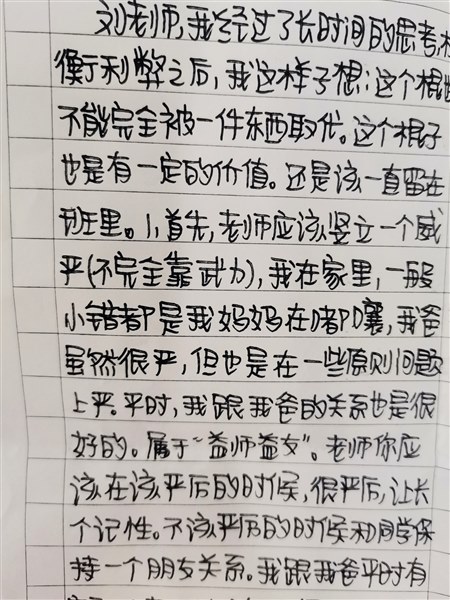 刘老师,我经过了长时间的思考,权
衡利弊之后,我这样子想:这个棍
不能完全被一件东西取代。这个棍子
也是有一定的价值。还是该一直留在
班里。1、首先,老师应该竖立一个威
严(不完全靠武力),我在家里,一般
小错都是我妈妈在嘟囔,我爸
虽然很严,但也是在一些原则问题
上严。平时,我跟我爸的关系也是很
好的。属于“益师益友”。老师你应
该在该严厉的时候,很严厉,让长
个记性。不该严厉的时候和同学保
持一个朋友关系。我跟我爸平时有